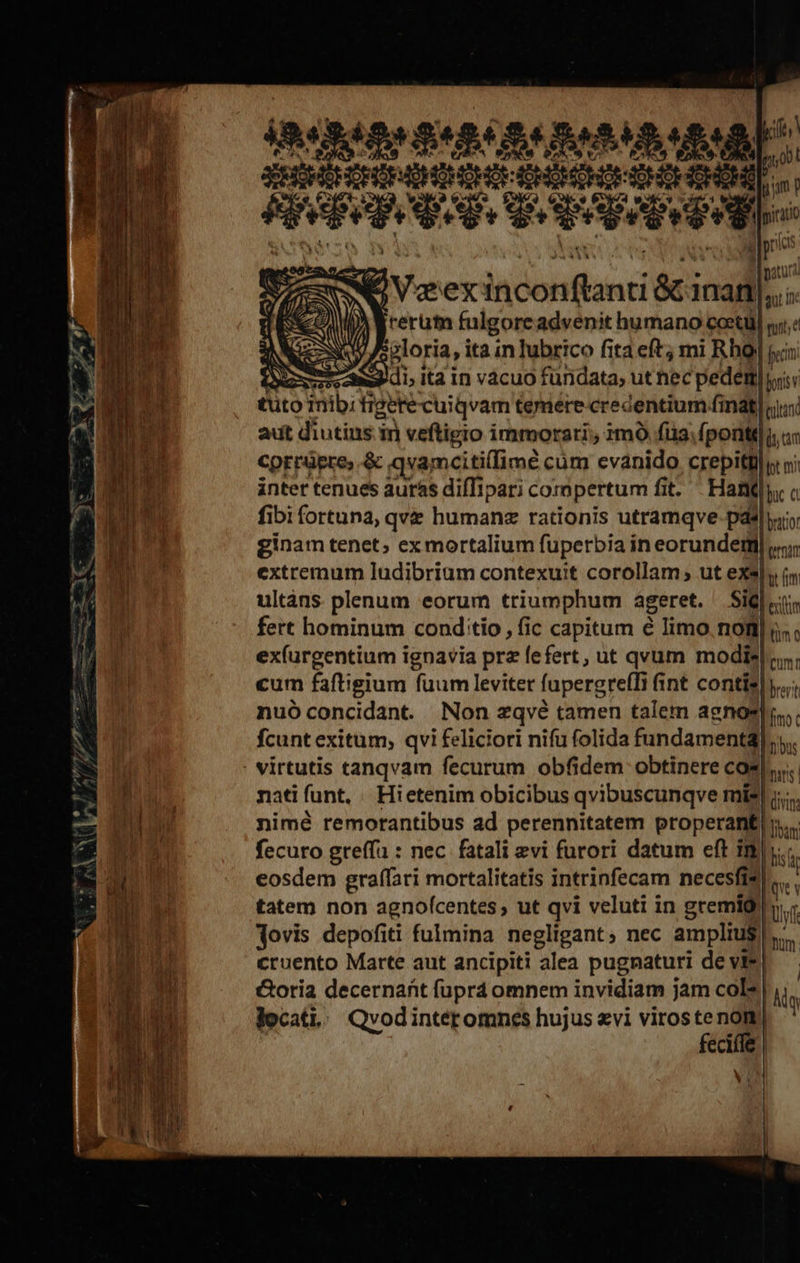 Væ ex inconſtanti & inani
rerum fulgore advenit humano cœtui
gloria, ita in lubrico ſita eſt, mi Rho-
di, ita in vacuo fundata, ut nec pedem
tuto inibi figere cuiqvam temere credentium ſinat,
aut diutius in veſtigio immorari, imò ſua ſponte
corrüere, & qvamcitiſſimé cùm evanido crepitu
inter tenues auras diſſipari compertum ſit. Hanc
ſibi fortuna, qvæ humanæ rationis utramqve pa-
ginam tenet, ex mortalium ſuperbia in eorundem
extremum ludibrium contexuit corollam, ut ex-
ultáns plenum eorum triumphum ageret. Sic
fert hominum conditio, ſic capitum é limo non
exſurgentium ignavia præ ſe fert, ut qvum modi-
cum faſtigium ſuum leviter ſupergreſſi ſint conti-
nuò concidant. Non æqvè tamen talem agno-
ſcunt exitum, qvi feliciori niſu ſolida fundamenta
virtutis tanqvam ſecurum obſidem obtinere co-
nati ſunt. Hi etenim obicibus qvibuscunqve mi-
nimé remorantibus ad perennitatem properant
ſecuro greſſu : nec fatali ævi furori datum eſt in
eosdem graſſari mortalitatis intrinſecam necesſi-
tatem non agnoſcentes, ut qvi veluti in gremio
Jovis depoſiti fulmina negligant, nec amplius
cruento Marte aut ancipiti alea pugnaturi de vi-
ctoria decernant ſuprá omnem invidiam jam col-
locati. Qvod inter omnes hujus ævi viros te non
feciſſe